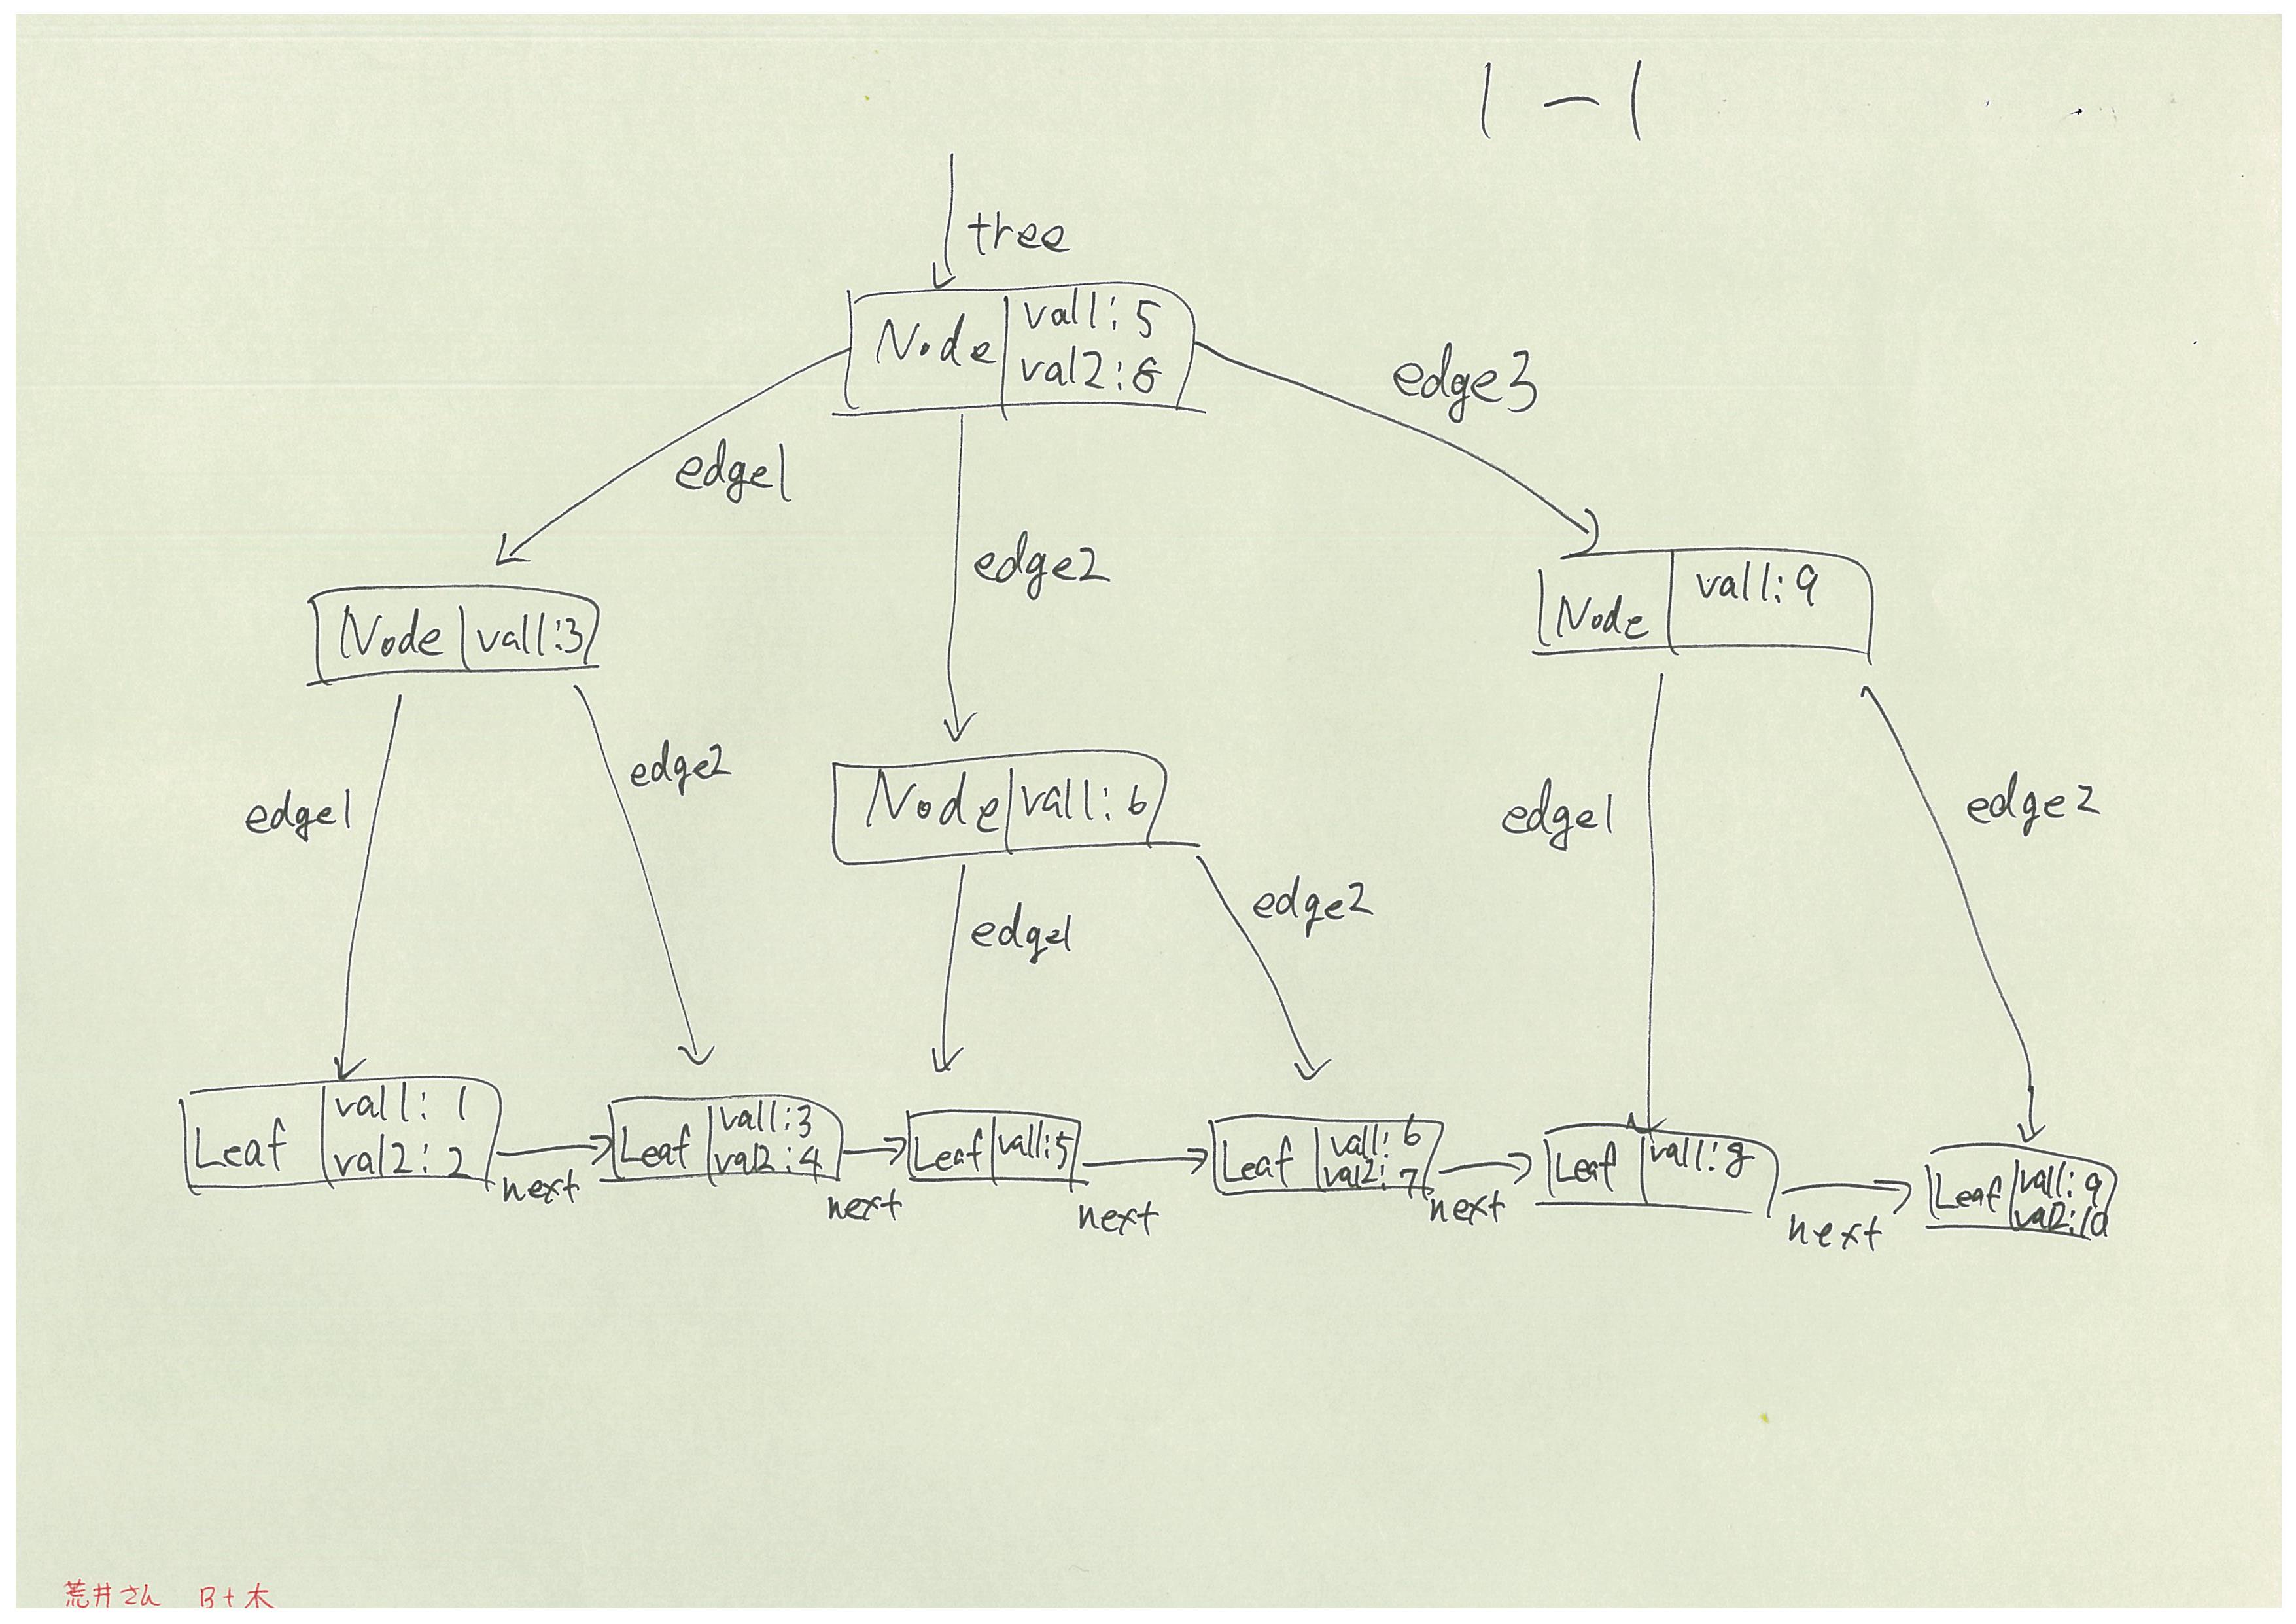 1-1
tree
Node val1: 5
val2: 8
edge1
edge2
edge3
Node val1:3
Node val1: 9
edge1
edge2
Node val1: 6
edge1
edge2
edge1
edge2
Leaf val1: 1
val2: 2
next
Leaf val1:3
val2:4
next
Leaf val1:5
next
Leaf val1: 6
val2: 7
next
Leaf val1: 8
next
Leaf val1: 9
val2:10
荒井さん B+木